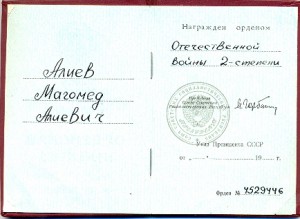 Алиев
Магомед
Алиевич
Награжден орденом
Отечественной
войны 2-степени
Указ Президента СССР
от
19
г.
Орден № 7529446